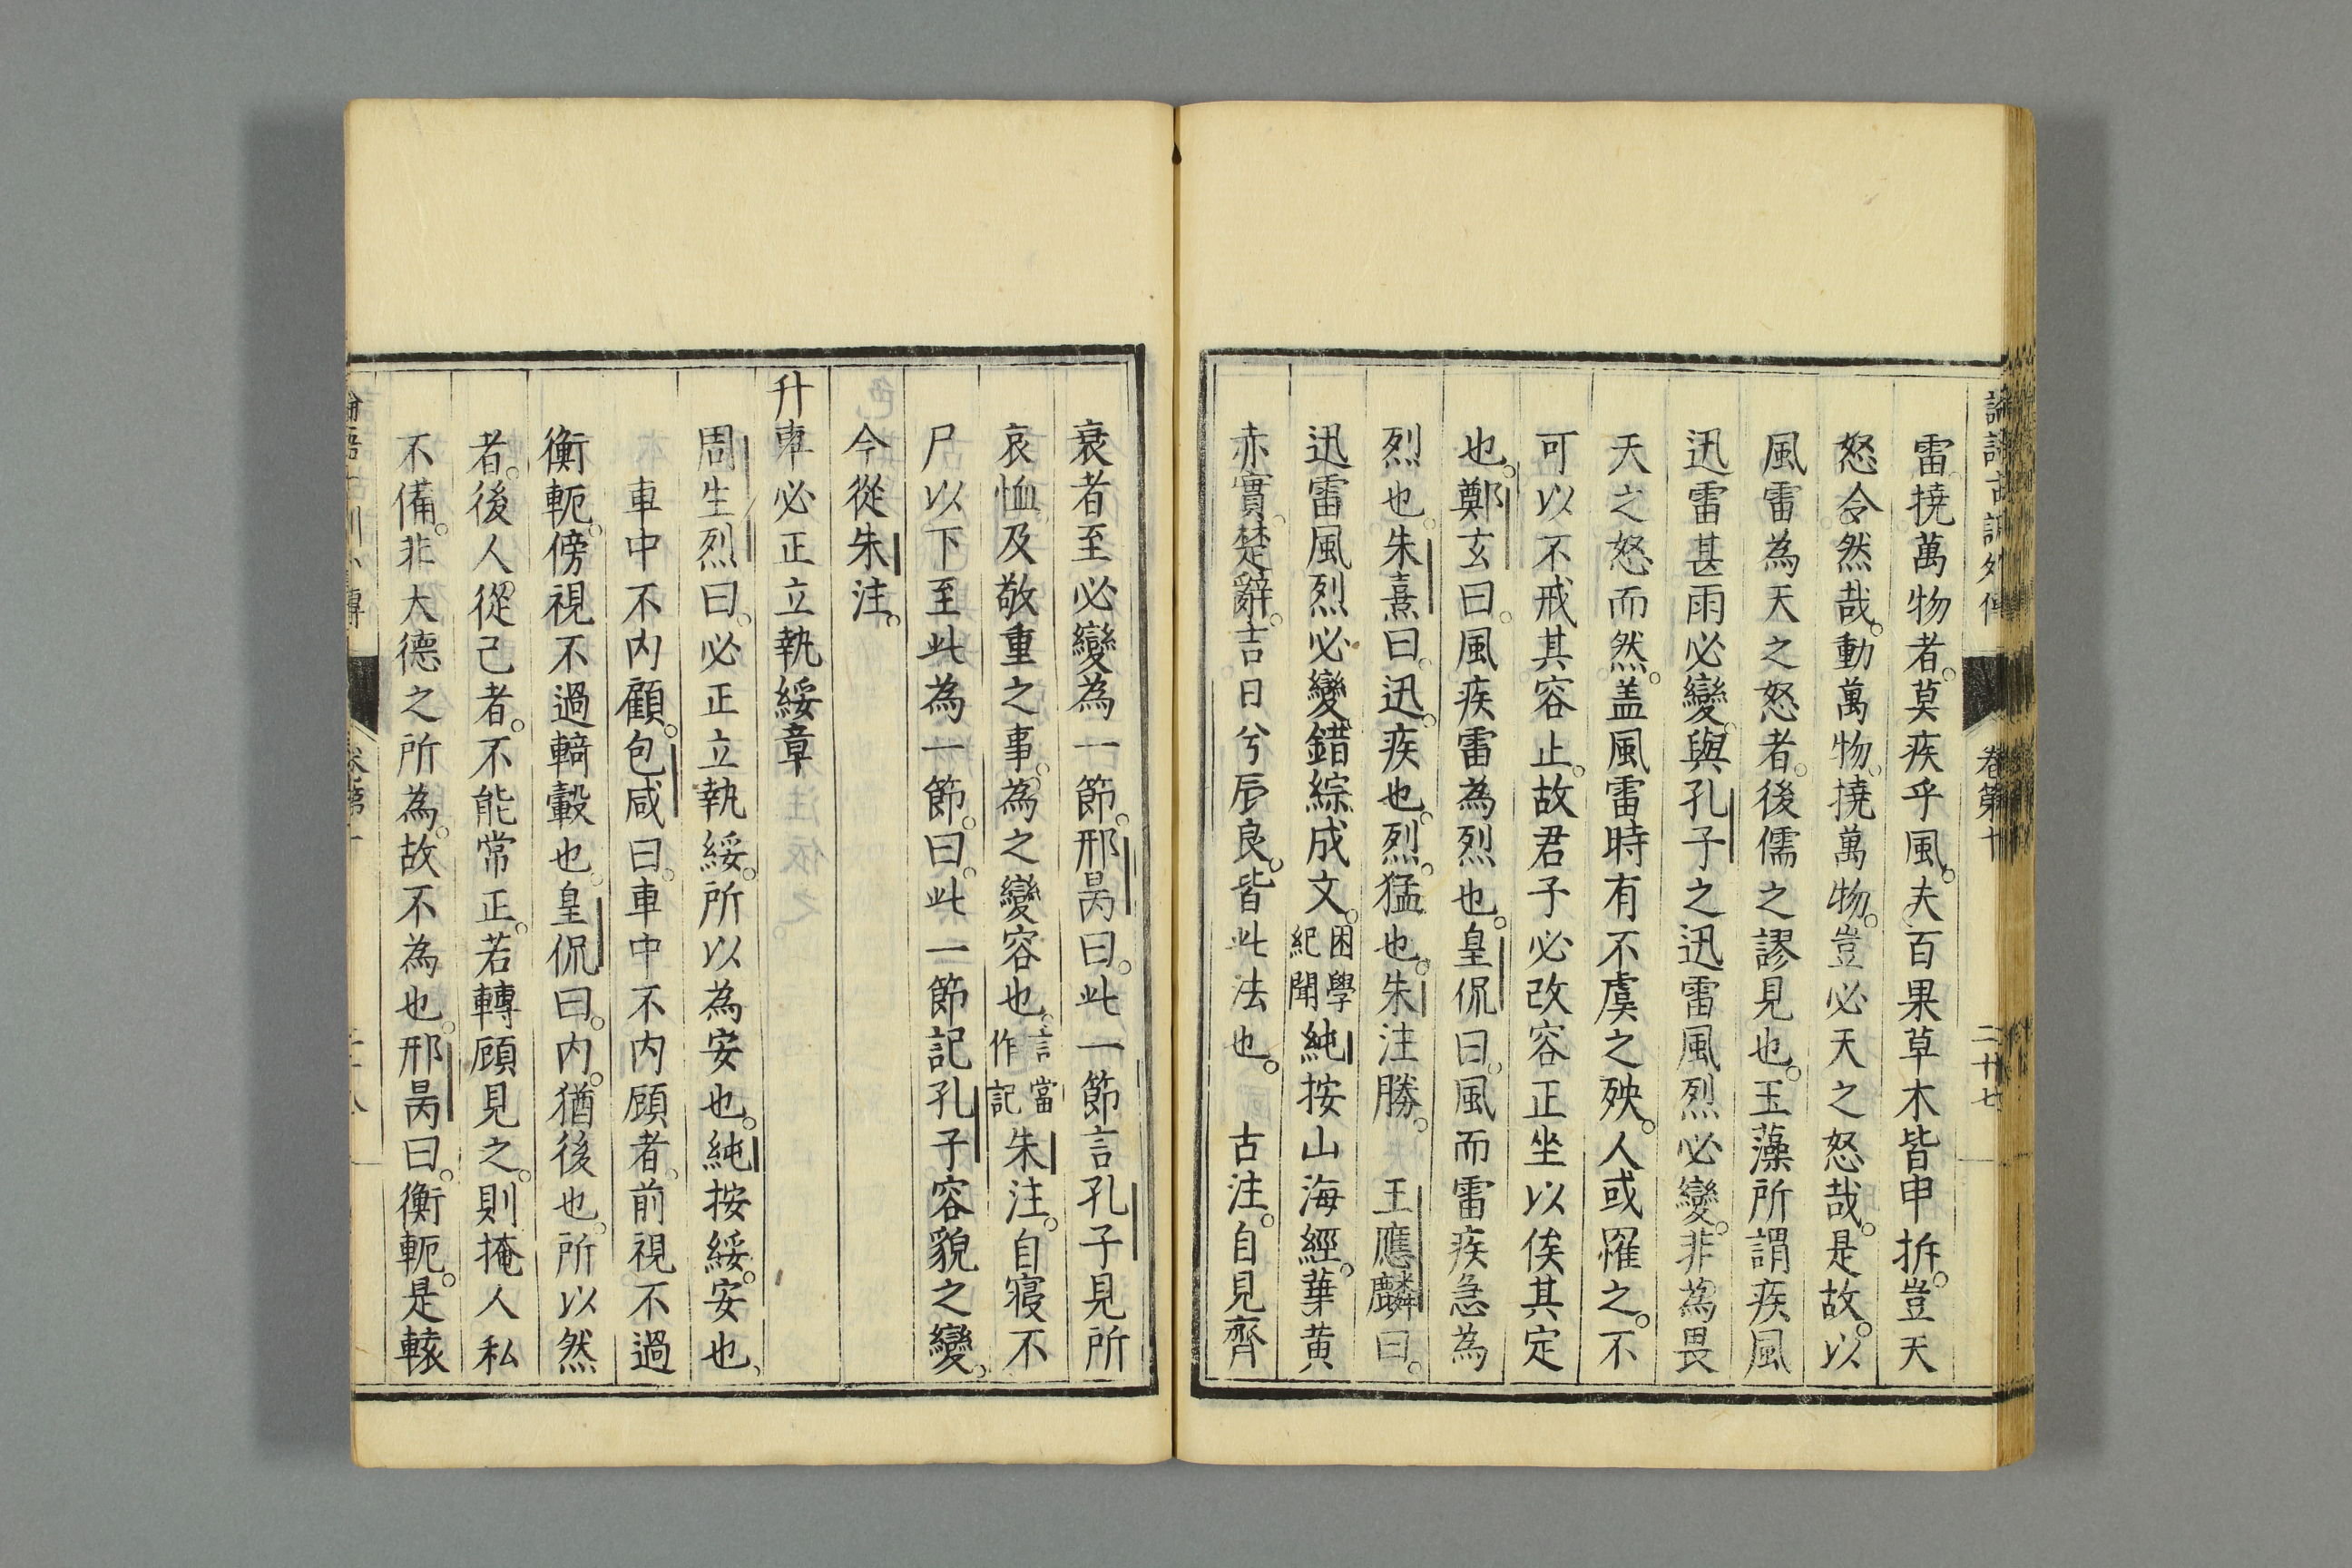 論語古訓外傳 卷第十 二十七
雷撓萬物者。莫疾乎風。夫百果草木皆申拆。豈天
怒令然哉。動萬物。撓萬物。豈必天之怒哉。是故。以
風雷為天之怒者。後儒之謬見也。玉藻所謂疾風
迅雷甚雨必變。與孔子之迅雷風烈必變。非為畏
天之怒而然。盖風雷時有不虞之殃。人或罹之。不
可以不戒其容止。故君子必改容正坐以俟其定
也。鄭玄曰。風疾雷為烈也。皇侃曰。風而雷疾急為
烈也。朱熹曰。迅。疾也。烈。猛也。朱注勝。 王應麟曰。
迅雷風烈必變錯綜成文。困學紀聞純按山海經。葉黄
赤實。楚辭。吉日兮辰良。皆此法也。 古注。自見齊
衰者至必變為一節。邢昺曰。此一節言孔子見所
哀恤。及敬重之事。為之變容也。言當作記朱注。自寢不
尸以下至此為一節。曰。此一節記孔子容貌之變。
今從朱注。
升車必正立執綏章
周生烈曰。必正立執綏。所以為安也。純按綏。安也、
車中不内顧。包咸曰。車中不内顧者。前視不過
衡軛。傍視不過輢轂也。皇侃曰。内。猶後也。所以然
者。後人從己者。不能常正。若轉顧見之。則掩人私
不備。非大德之所為。故不為也。邢昺曰。衡軛。是轅